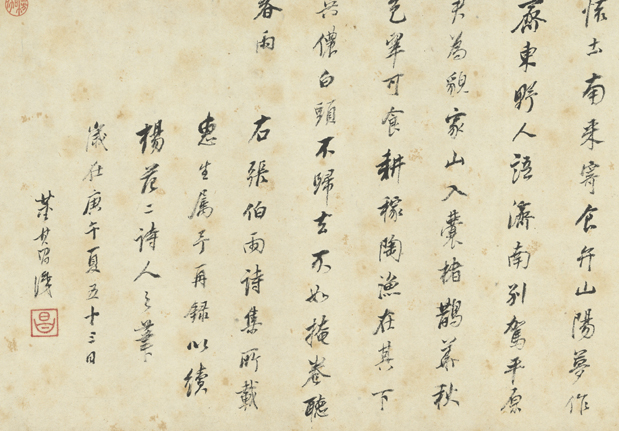 懷土南來寄食弁山陽夢作
齊東野人語濟南別駕平原
君為貌家山入囊楮鵲華秋
色翠可食耕稼陶漁在其下
吳儂白頭不歸去不如掩卷聽
春雨
右張伯雨詩集所載
惠生屬予再錄以續
楊范二詩人之筆
歲在庚午夏五十三日
董其昌識
昌